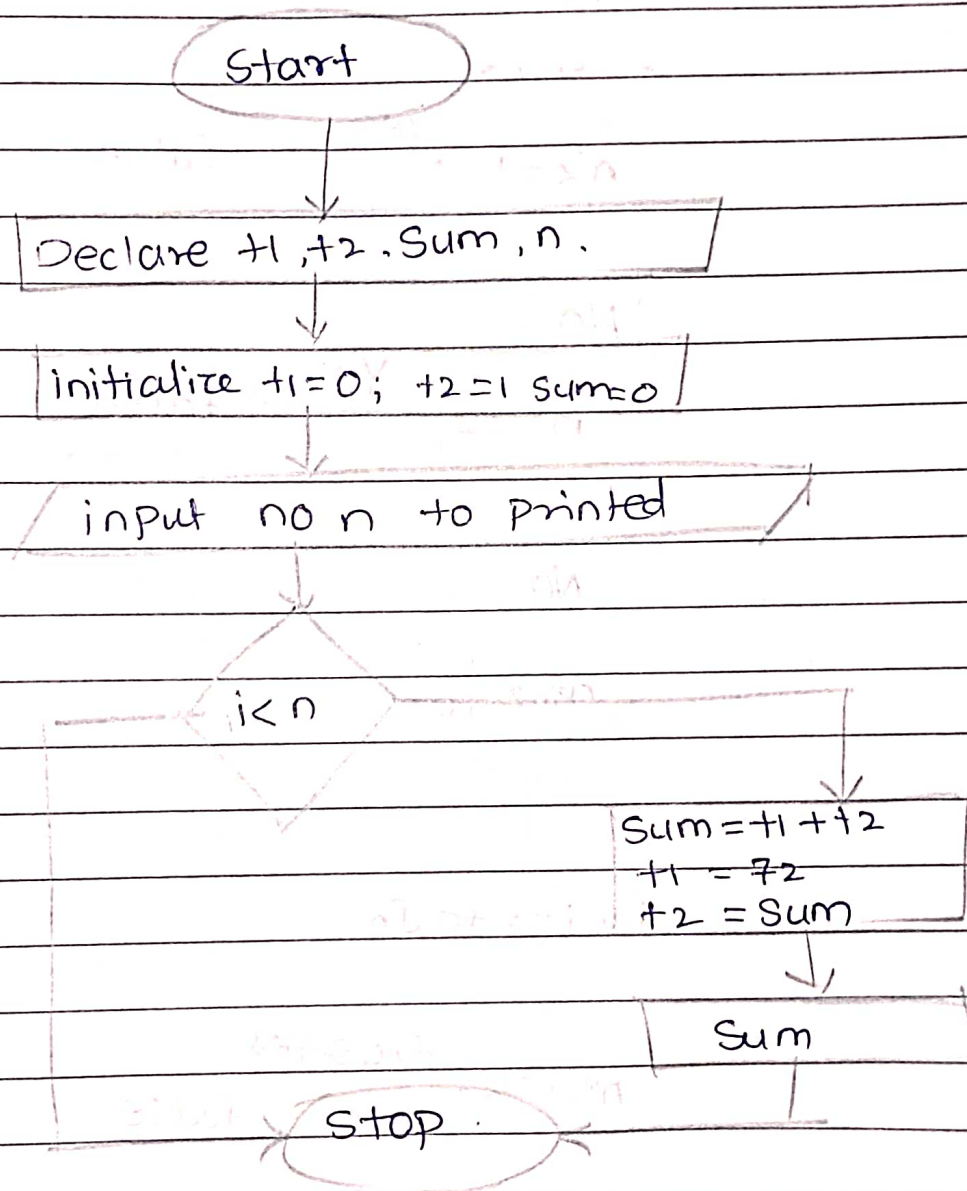 Start
Declare t1, t2. Sum, n.
initialize t1=0; t2=1 sum=0
input no n to printed
i<n
Sum = t1 + t2
t1 = t2
t2 = Sum
Sum
Stop.